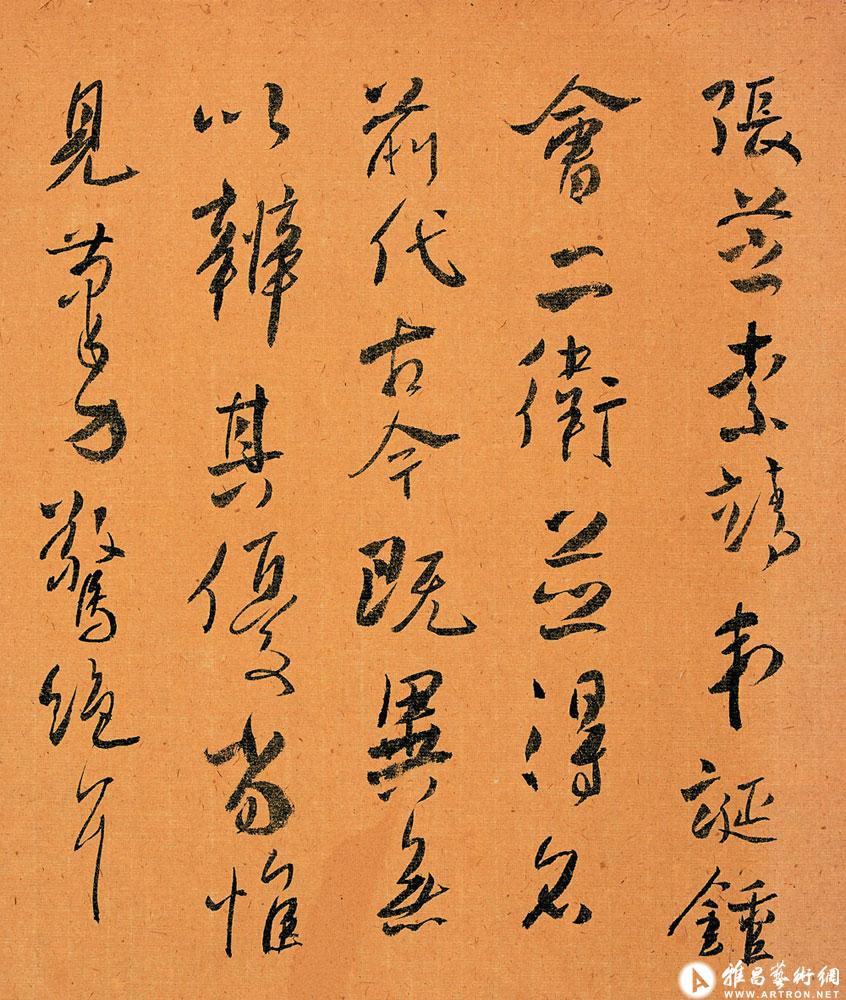 張芝索靖韋誕鍾
會二衛並得名
前代古今既異無
以辨其優劣惟
見筆力驚絶耳
雅昌藝術網
WWW.ARTRON.NET